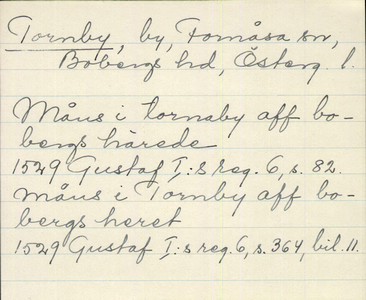 Tornby, by, Fornåsa sn,
Bobergs hd, Österg. l.
Måns i tornaby aff bo-
bergs härede
1529 Gustaf I:s reg. 6, s. 82.
måns i Tornby aff bo-
bergs heret
1529 Gustaf I:s reg. 6, s. 364, bil. 11.